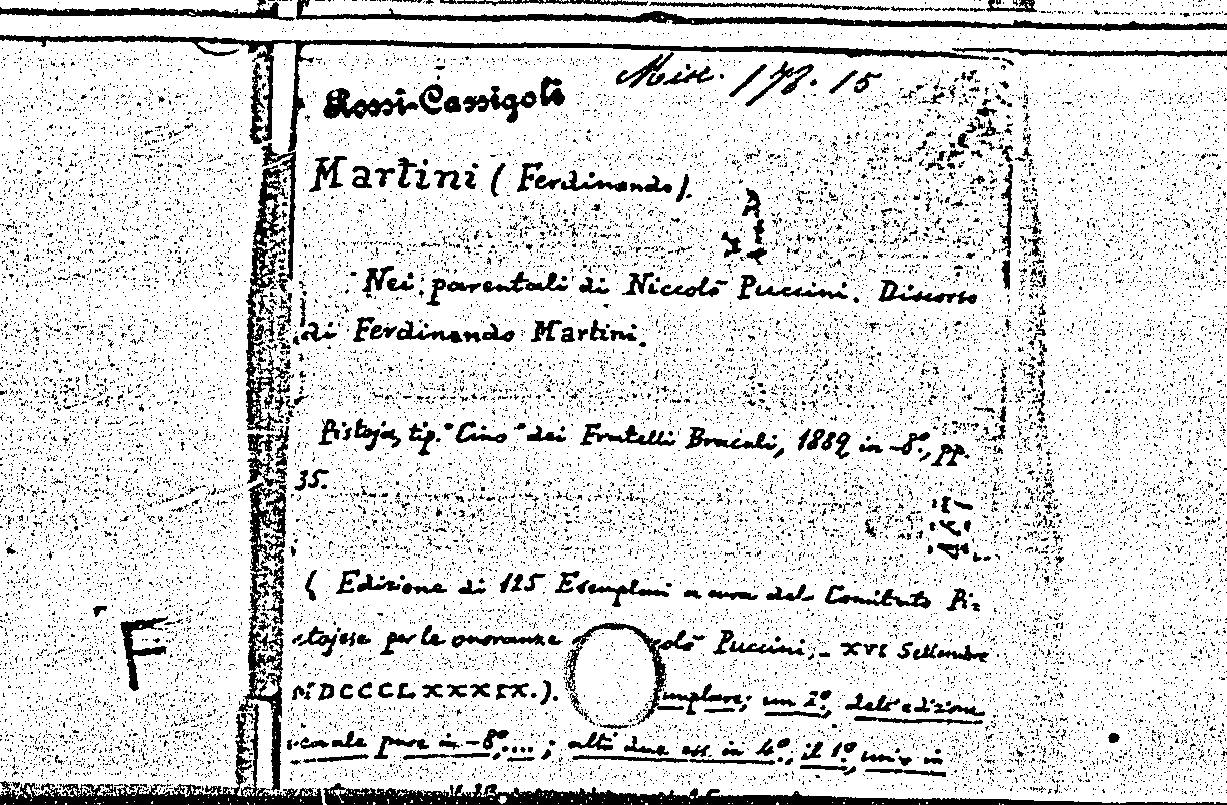 Misc. 178. 15
Rossi-Cassigoli
Martini (Ferdinando).
Nei parentali di Niccolò Puccini. Discorso
di Ferdinando Martini.
Pistoja, tip. "Cino" dei Fratelli Bracali, 1889 in-8°, pp.
35.
( Edizione di 125 Esemplari a cura del Comitato Pi=
stojese per le onoranze colò Puccini,- XVI Settembre
MDCCCLXXXIX.). emplare; un 2°, dell'edizione
pure in-8°,...; altri due es. in 4°, il 1°, unico in
F